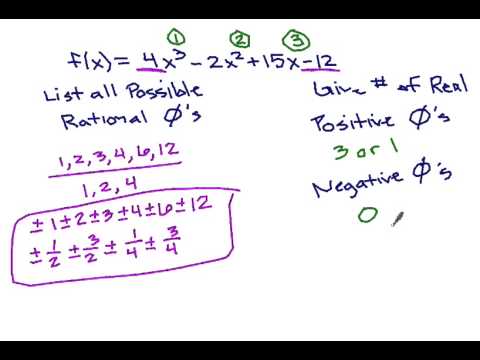 ① ② ③
f(x) = 4x³ - 2x² + 15x - 12
List all Possible
Rational Ø's
1, 2, 3, 4, 6, 12
1, 2, 4
±1 ±2 ±3 ±4 ±6 ±12
±1/2 ±3/2 ±1/4 ±3/4
Give # of Real
Positive Ø's
3 or 1
Negative Ø's
0